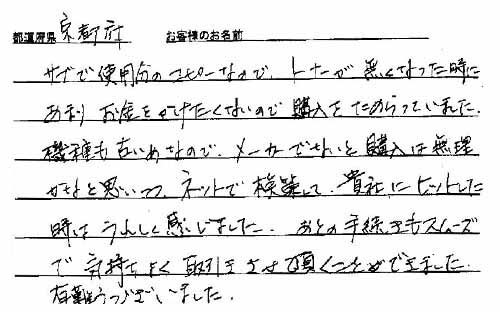 都道府県 京都府 お客様のお名前
サブで使用分のコピーなので、トナーが無くなった時に
あまりお金をかけたくないので購入をためらっていました。
機種も古いめなので、メーカーでないと購入は無理
かなと思いつつ、ネットで検索して、貴社にヒットした
時はうれしく感じました。あとの手続きもスムーズ
で気持ちよく取引きさせて頂くことができました。
有難うございました。